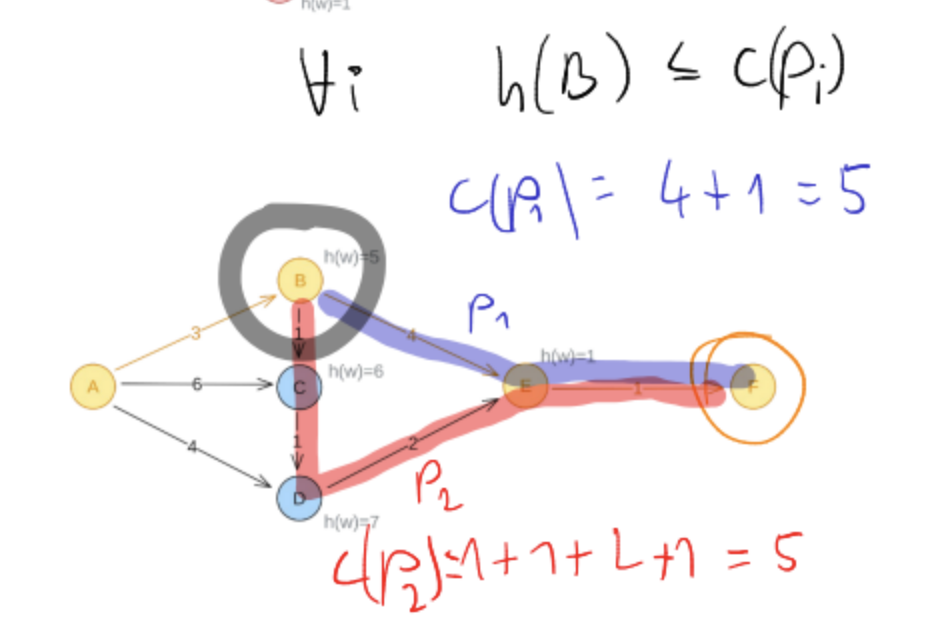 h(w)=1
∀i h(B) ≤ c(Pi)
c(P1) = 4+1 = 5
h(w)=5
B
P1
3
1
4
h(w)=1
h(w)=6
A
6
C
E
1
F
4
1
2
D
P2
h(w)=7
c(P2)=1+1+2+1 = 5